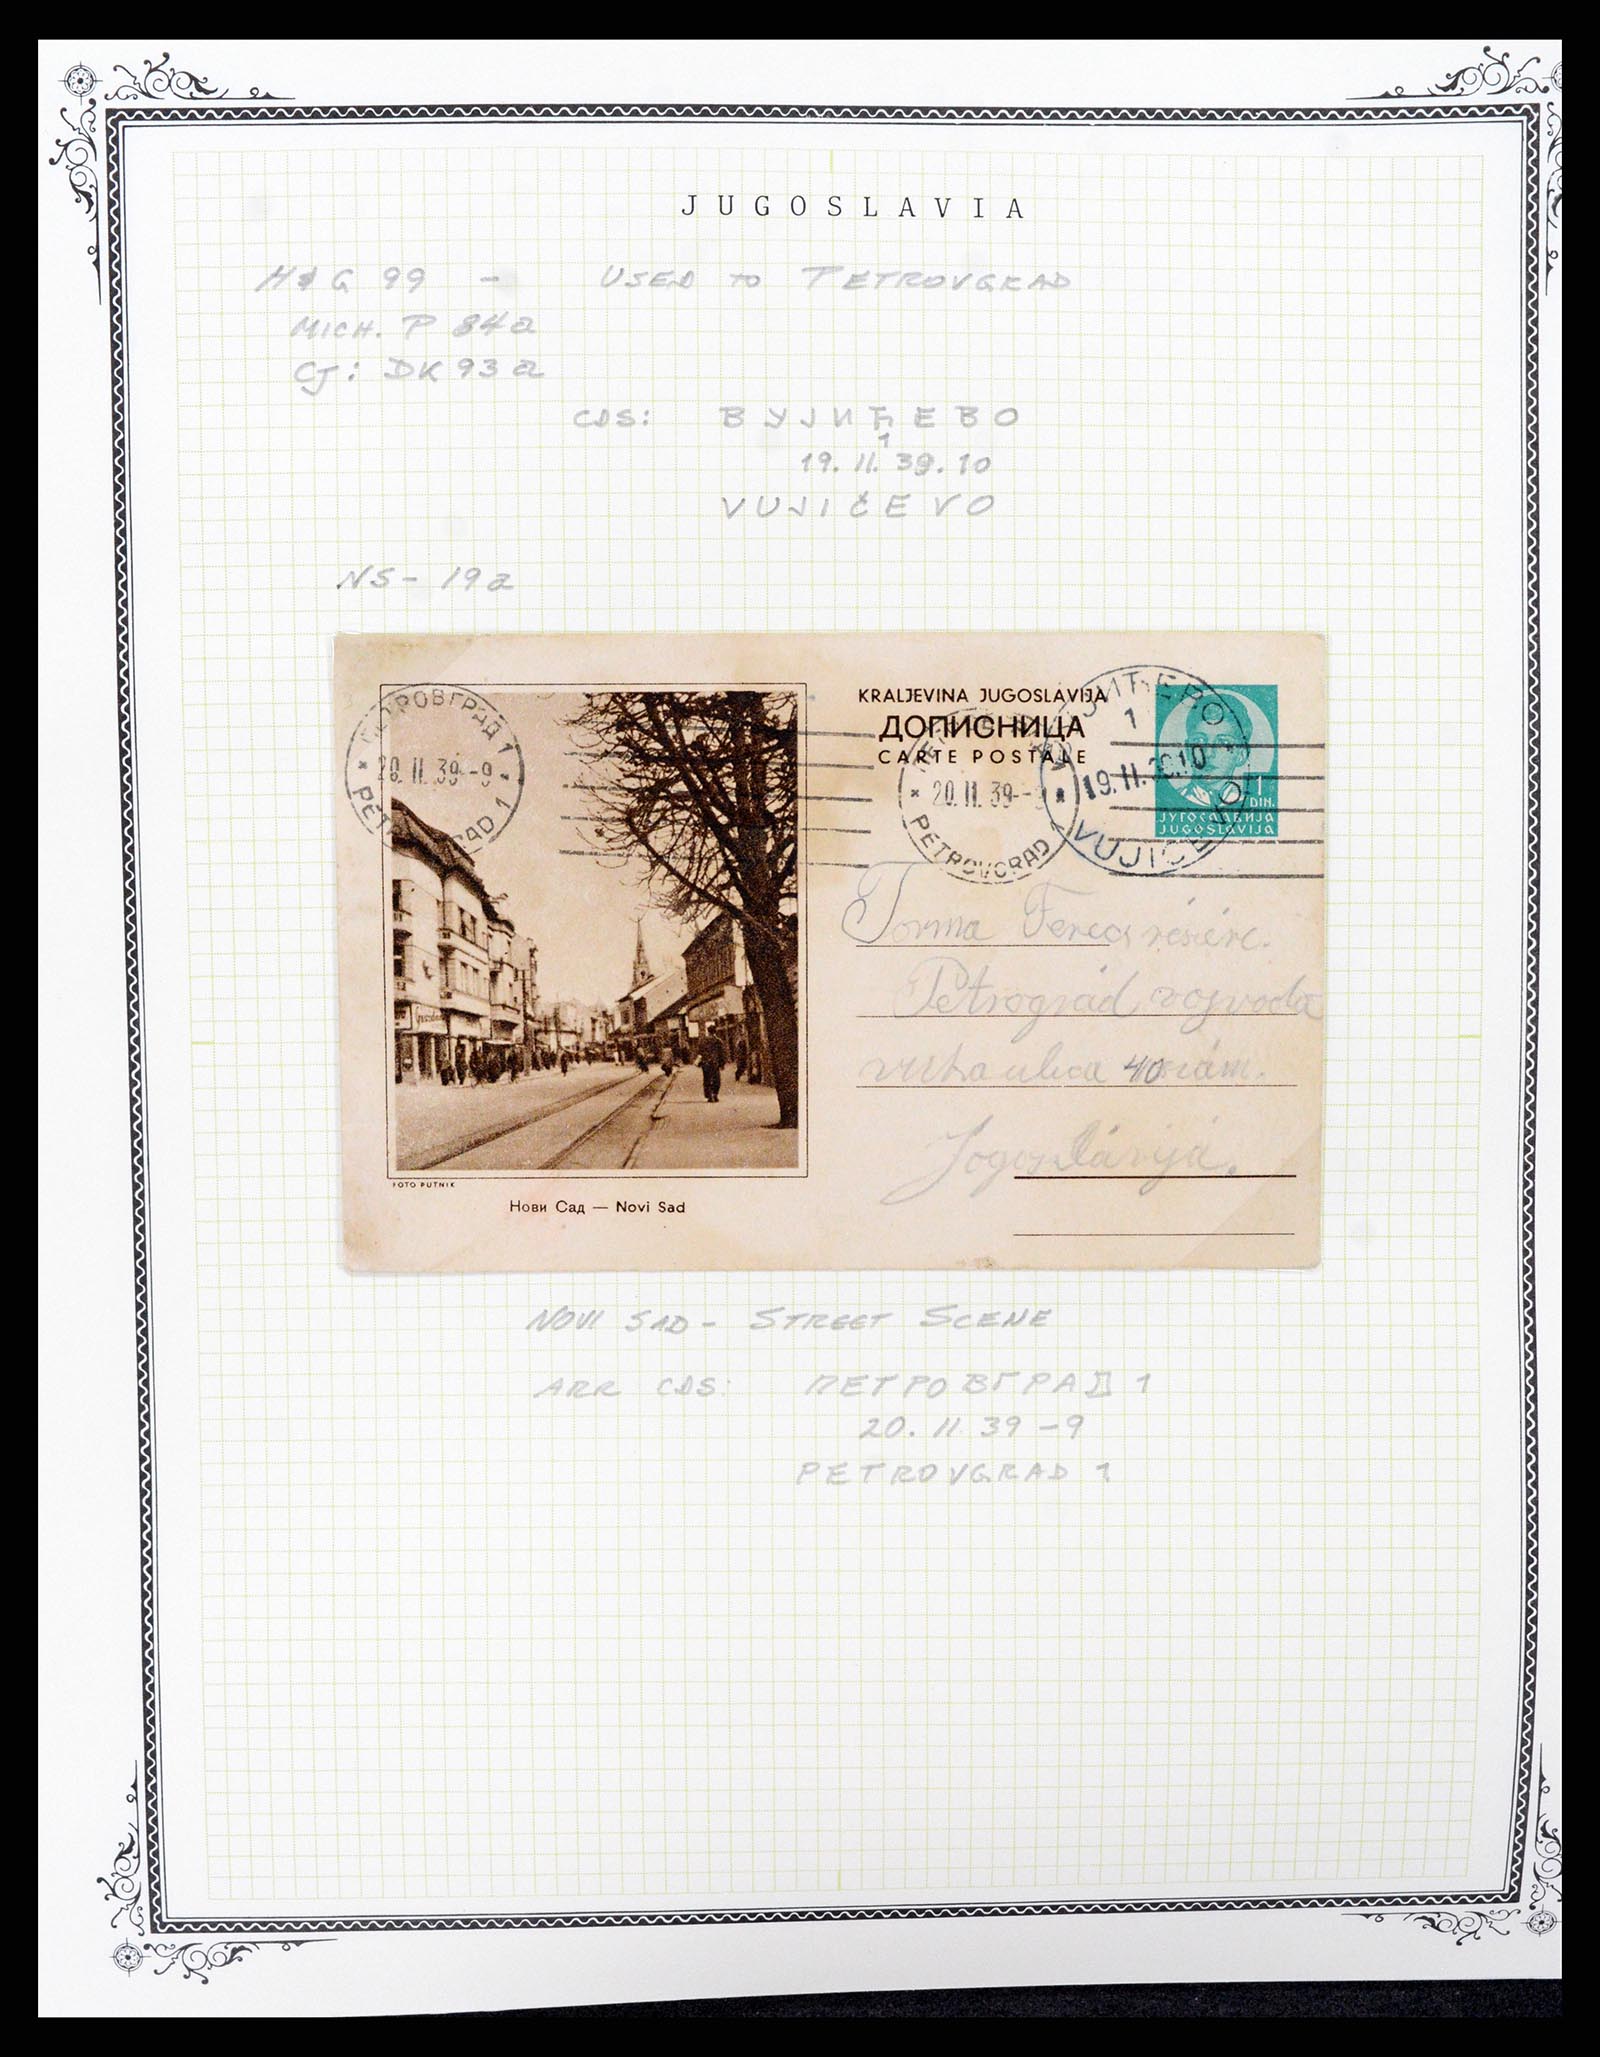 JUGOSLAVIA
H&G 99 - USED TO PETROVGRAD
MICH. P 84a
CJ: DK 93a
CDS: ВУЈИЋЕВО
1
19.II.39.10
VUJIČEVO
NS-19a
ПЕТРОВГРАД 1
20.II.39--9
PETROVGRAD 1
KRALJEVINA JUGOSLAVIJA
ДОПИСНИЦА
CARTE POSTALE
20.II.39--9
PETROVGRAD 1
ВУЈИЋЕВО
1
19.II.39.10
VUJIČEVO
1 DIN.
ЈУГОСЛАВИЈА
JUGOSLAVIJA
Torma Ferenc részére.
Petrográd vojvoda
ulica 40 szám.
Jogoslávija.
FOTO PUTNIK
Нови Сад — Novi Sad
NOVI SAD - STREET SCENE
ARR CDS: ПЕТРОВГРАД 1
20.II 39-9
PETROVGRAD 1